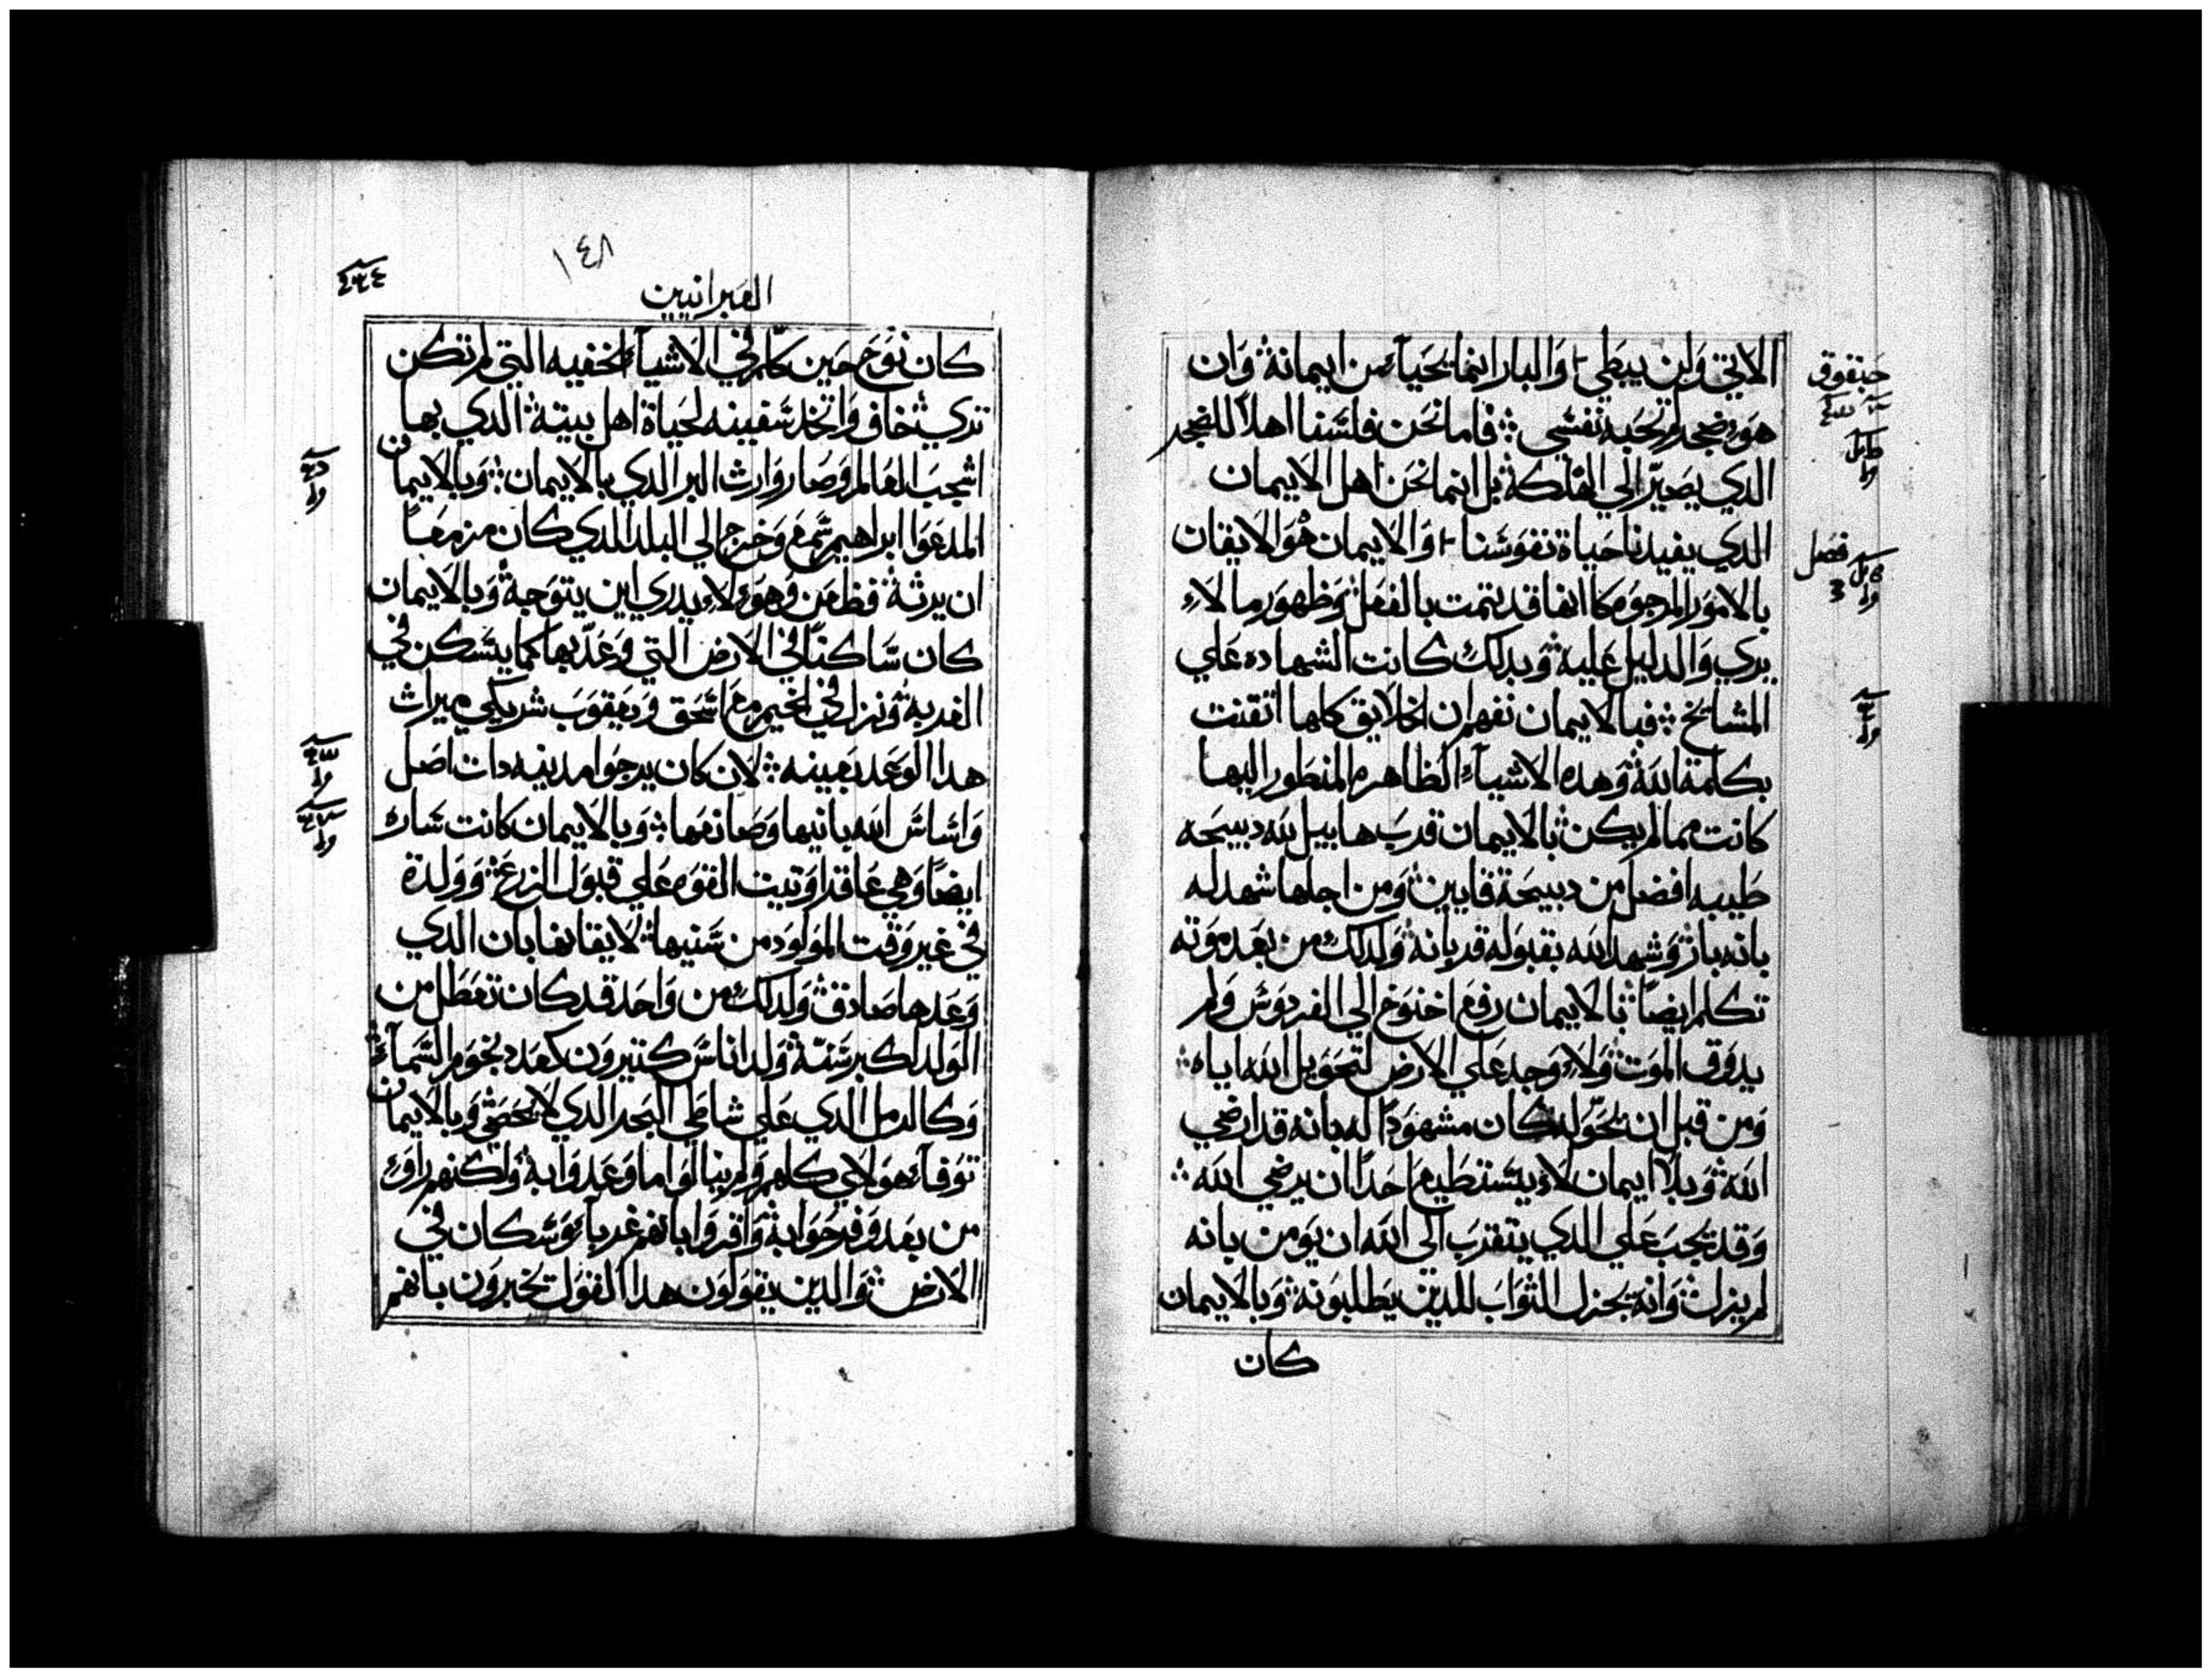 الاتي ولن يبطي وَالبار انما يحيا من ايمانه وان
هو ضجر لم تحبه نفسي فاما نحن فلسنا اهلا للضجر
الدي يصير الي الهلكة بل انما نحن اهل الايمان
الدي يفيدنا حياة نفوسنا والايمان هو الايقان
بالامور المرجوه كانها قد تمت بالفعل وظهور ما لا
يري والدليل عليه وبدلك كانت الشهاده علي
المشايخ فبالايمان نفهم ان الخلايق كلها اتقنت
بكلمة الله وهده الاشياء الظاهره المنطور اليها
كانت مما لم يكن بالايمان قرب هابيل لله دبيحه
طيبه افضل من دبيحة قايين ومن اجلها شهد له
بانه بار وشهد الله بقبوله قربانه ولدلك من بعد موته
تكلم ايضا بالايمان رفع اخنوخ الي الفردوس ولم
يدوق الموت ولا وجد علي الارض لتحويل الله اياه
ومن قبل ان يحوله كان مشهودا له بانه قد ارضي
الله وبلا ايمان لا يستطيع احدا ان يرضي الله
وقد يجب علي الدي يتقرب الى الله ان يومن بانه
لم يزل وانه يجزل الثواب للدين يطلبونه وبالايمان
كان
حبقوق
فصل
١٤٨
العبرانيين
كان نوح حين كلم في الاشياء الخفيه التي لم تكن
تري خاف واتخد سفينه لحياة اهل بيته الدي بها
اشجب العالم وصار وارث البر الدي بالايمان وبالايمان
المدعوا ابراهيم سمع وخرج الي البلد الدي كان مزمعا
ان يرثه فظعن وهو لا يدري اين يتوجه وبالايمان
كان ساكنا في الارض التي وعد بها كما يسكن في
الغربه ونزل في الخيم مع اسحق ويعقوب شريكي ميراث
هدا الوعد بعينه لان كان يرجوا مدينه دات اصل
واساس الله بانيها وصانعها وبالايمان كانت ساره
ايضا وهي عاقرا وتيت القوه علي قبول الزرع وولدة
في غير وقت المولود من سنيها لايقانها بان الدي
وعدها صادق ولدلك من واحد قد كان تعطل من
الولد لكبر سنه ولد اناس كتيرون كعدد نجوم السماء
وكالرمل الدي علي شاطي البحر الدي لا يحصي وبالايمان
توفاء هولاي كلهم ولم ينالوا ما وعدوا به ولكنهم راوه
من بعد وفرحوا به واقروا بانهم غرباء وسكان في
الارض والدين يقولون هدا القول يخبرون بانهم